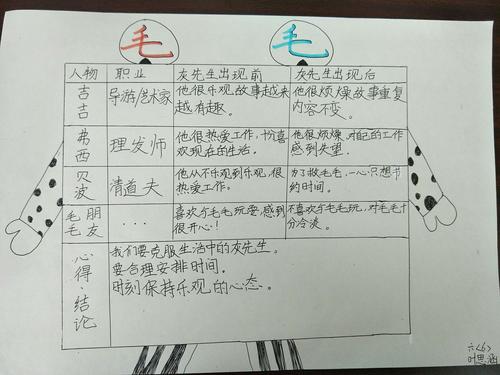 毛 毛
人物 职业 灰先生出现前 灰先生出现后
吉吉 导游/艺术家 他很乐观故事越来越有趣。 他很烦燥故事重复内容不变。
弗西 理发师 他很热爱工作,十份喜欢现在的生活。 他很烦燥,对自己的工作感到失望。
贝波 清道夫 他从不乐观到乐观,很热爱工作。 为了救毛毛,一心只想节约时间。
毛毛朋友 ... 喜欢与毛毛玩耍,感到很开心! 不喜欢与毛毛玩,对毛毛十分冷淡。
心得·结论
我们要克服生活中的灰先生。
要合理安排时间。
时刻保持乐观的心态。
六<6>
叶思涵